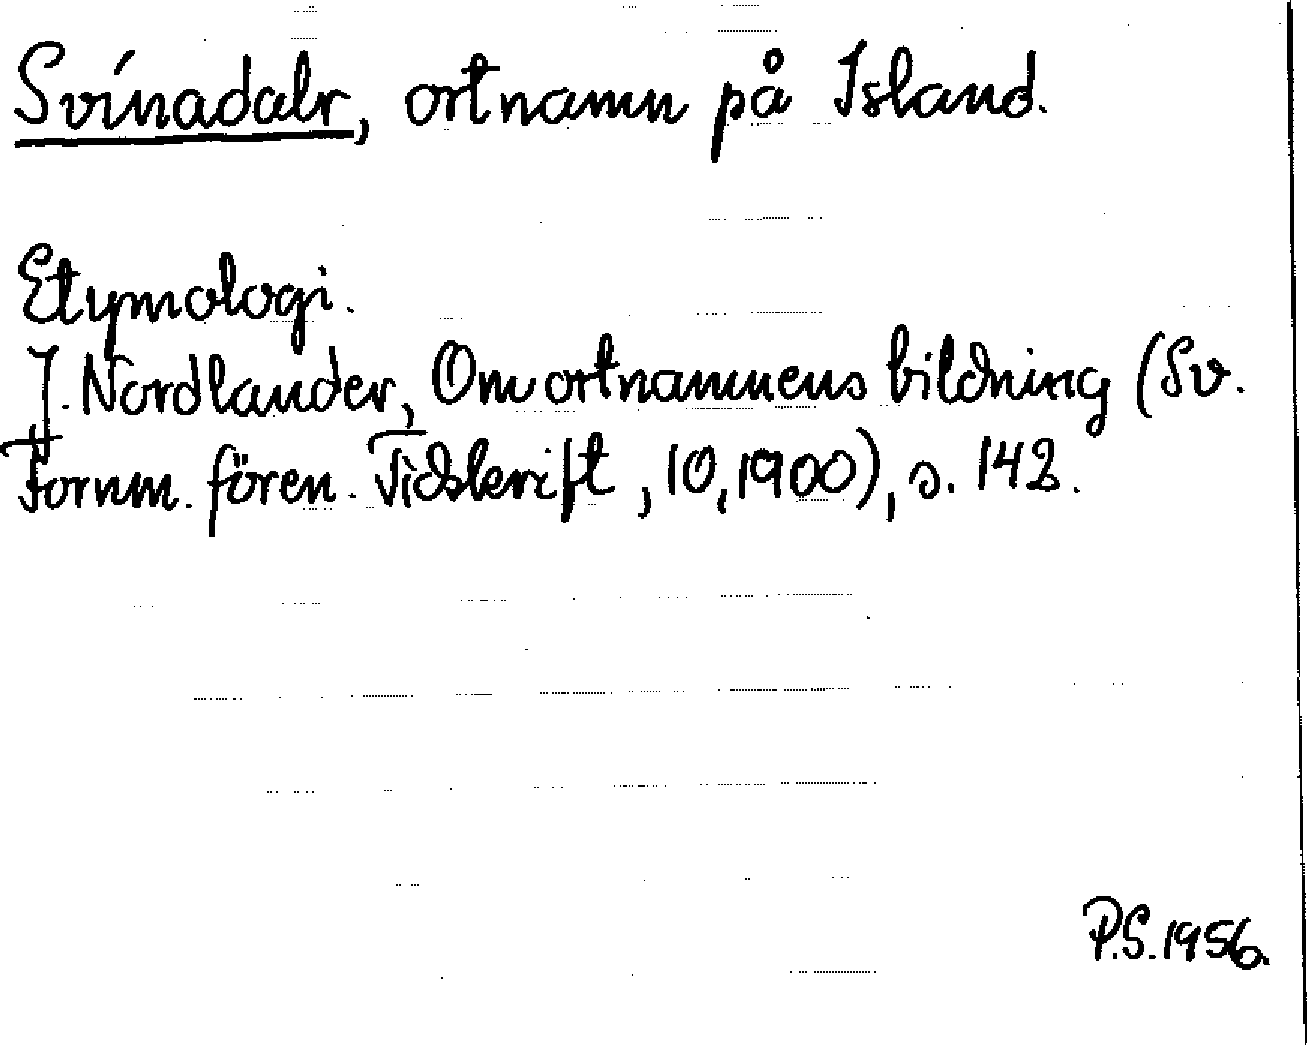 Svínadalr, ortnamn på Island.
Etymologi.
J. Nordlander, Om ortnamnens bildning (Sv.
Fornm. fören. Tidskrift, 10, 1900), s. 142.
P.S. 1956.